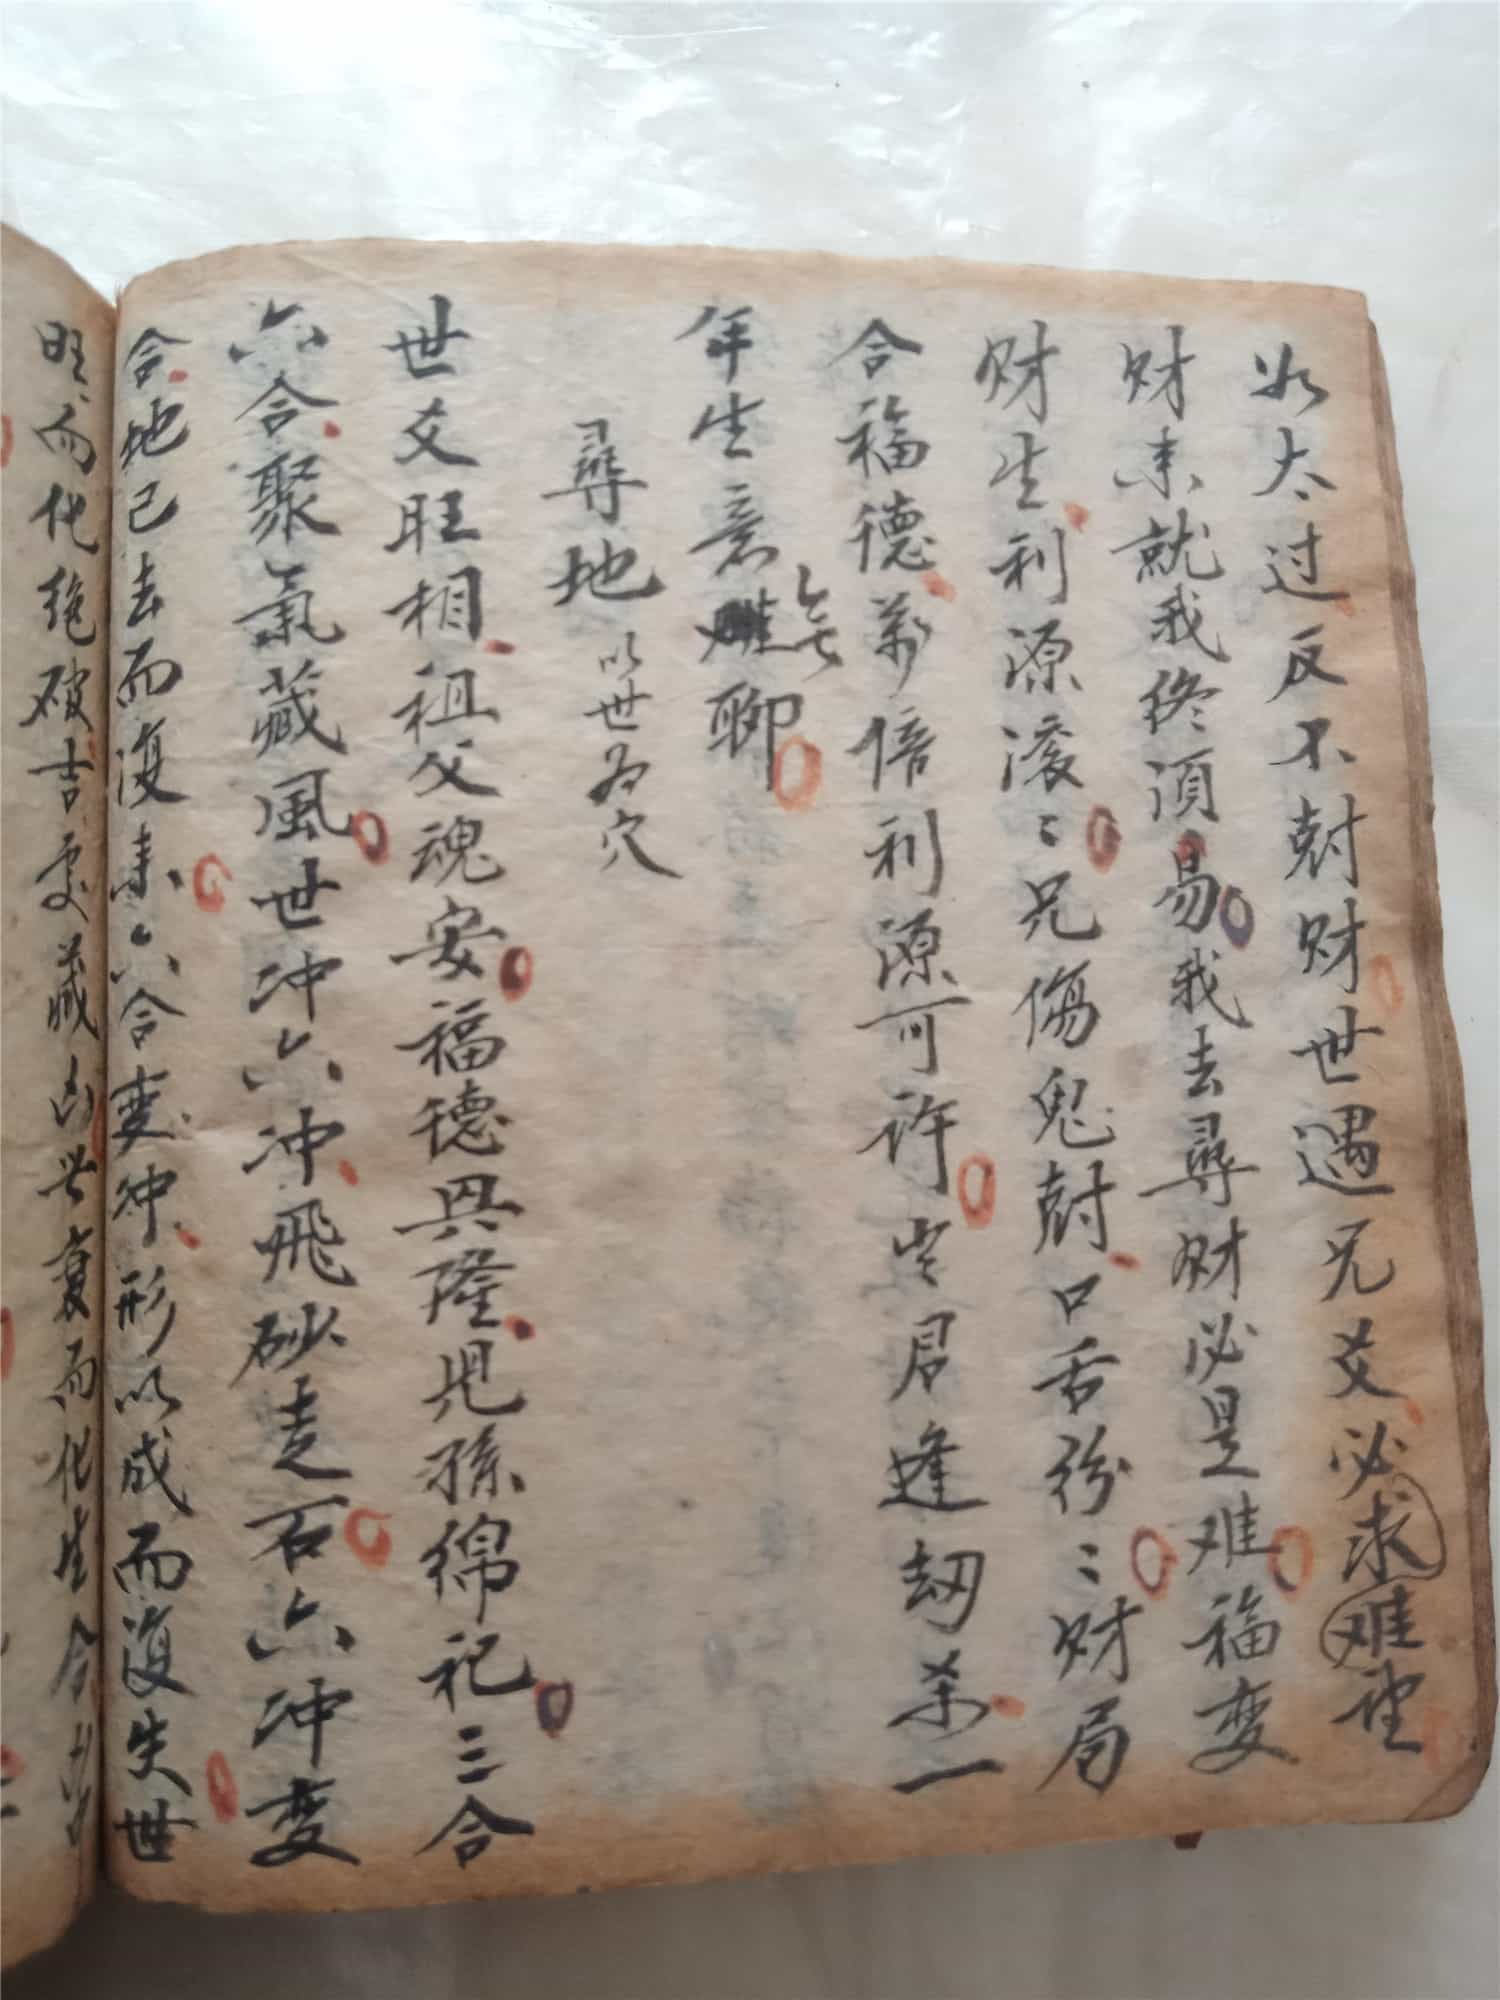 如太过反不尅财世遇兄爻必求难望
财来就我终须易我去尋财必是难福变
财生利源滚〻兄傷鬼尅口舌纷〻财局
合福德萬倍利源可许局逢劫杀一
年生意無聊
尋地以世为穴
世爻旺相祖父魂安福德興隆児孫綿祀三合
六合聚氣藏風世冲六冲飛砂走石六冲变
合地已去而復来六合变冲形以成而復失世
旺而化绝破吉处藏凶世衰而化生合